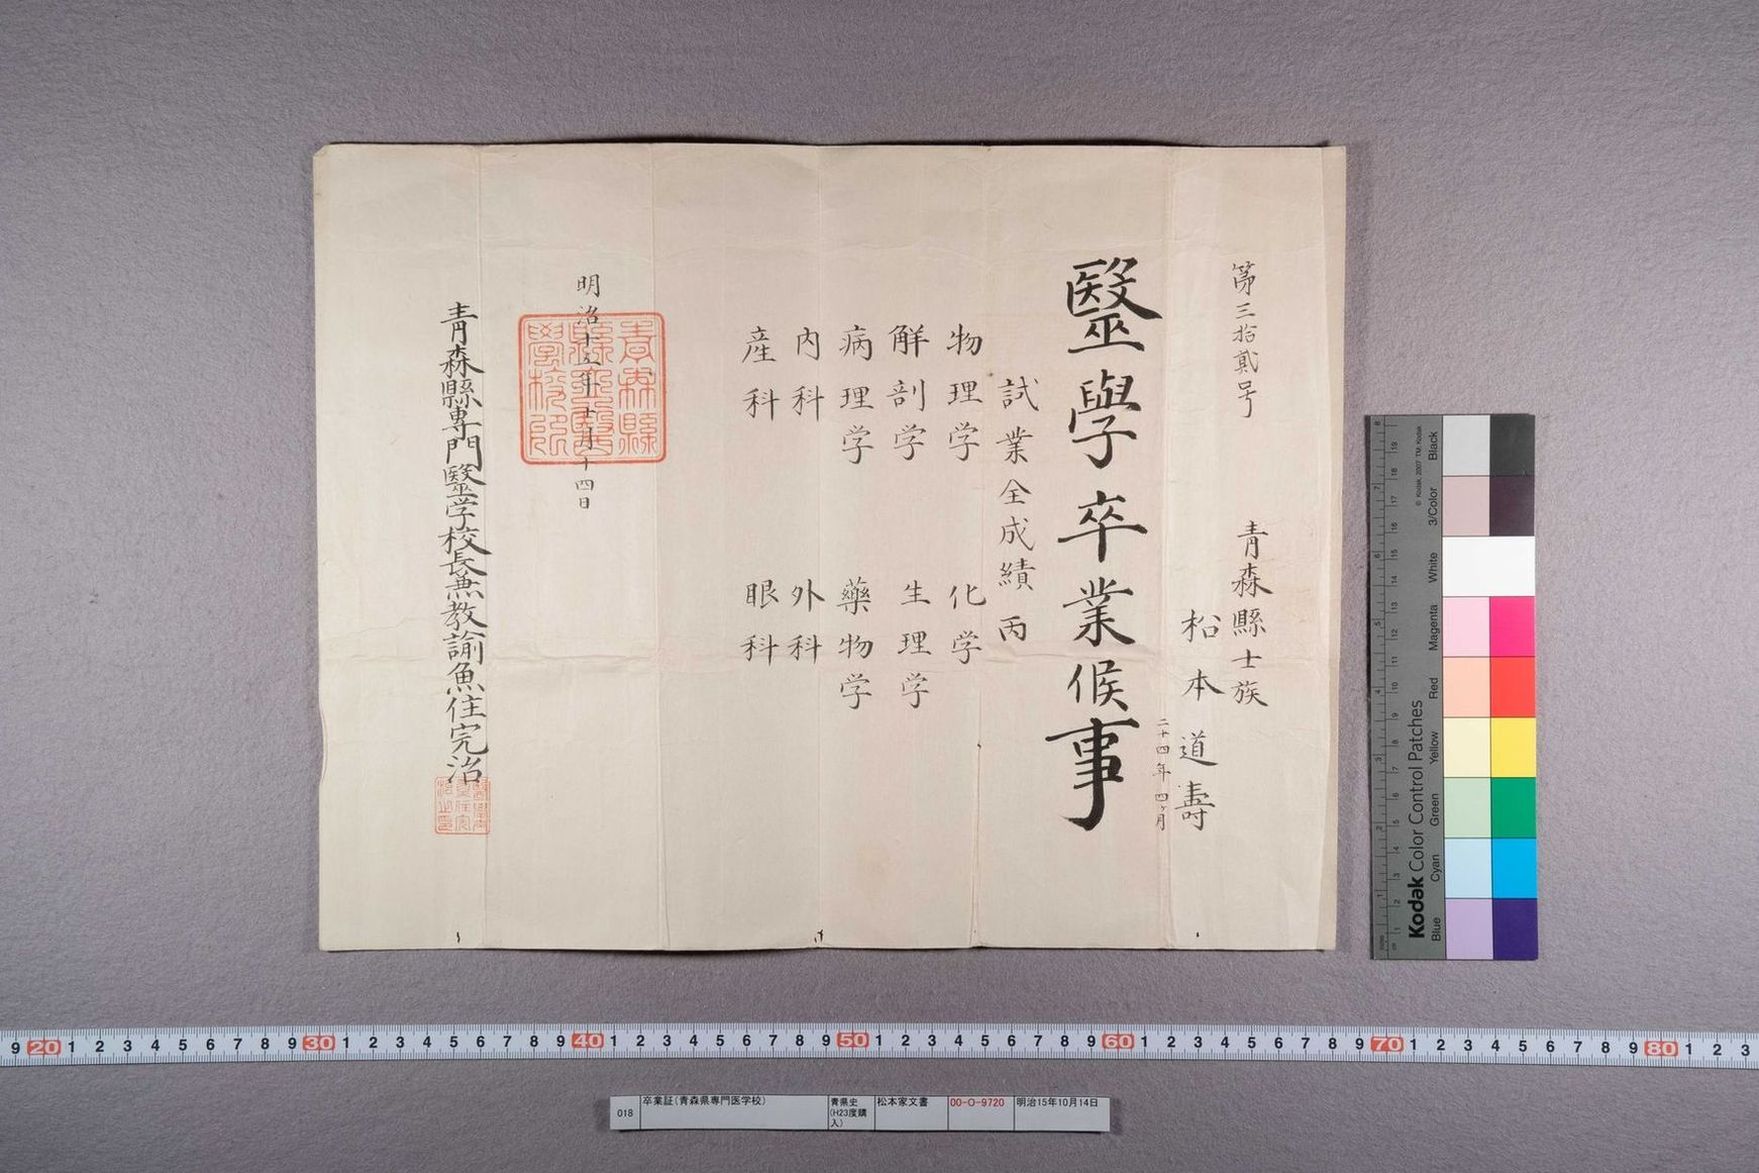 第三拾貳号
青森縣士族
松本道壽
二十四年四ヶ月
醫學卒業候事
試業全成績 丙
物理学 化学
解剖学 生理学
病理学 藥物学
内科 外科
産科 眼科
明治十五年十月十四日
青森縣専門醫学校長兼教諭魚住完治
Kodak Color Control Patches
© Kodak, 2007 TM: Kodak
Blue Cyan Green Yellow Red Magenta White 3/Color Black
9 20 1 2 3 4 5 6 7 8 9 30 1 2 3 4 5 6 7 8 9 40 1 2 3 4 5 6 7 8 9 50 1 2 3 4 5 6 7 8 9 60 1 2 3 4 5 6 7 8 9 70 1 2 3 4 5 6 7 8 9 80 1 2 3
018 卒業証(青森県専門医学校) 青県史(H23度購入) 松本家文書 00-O-9720 明治15年10月14日